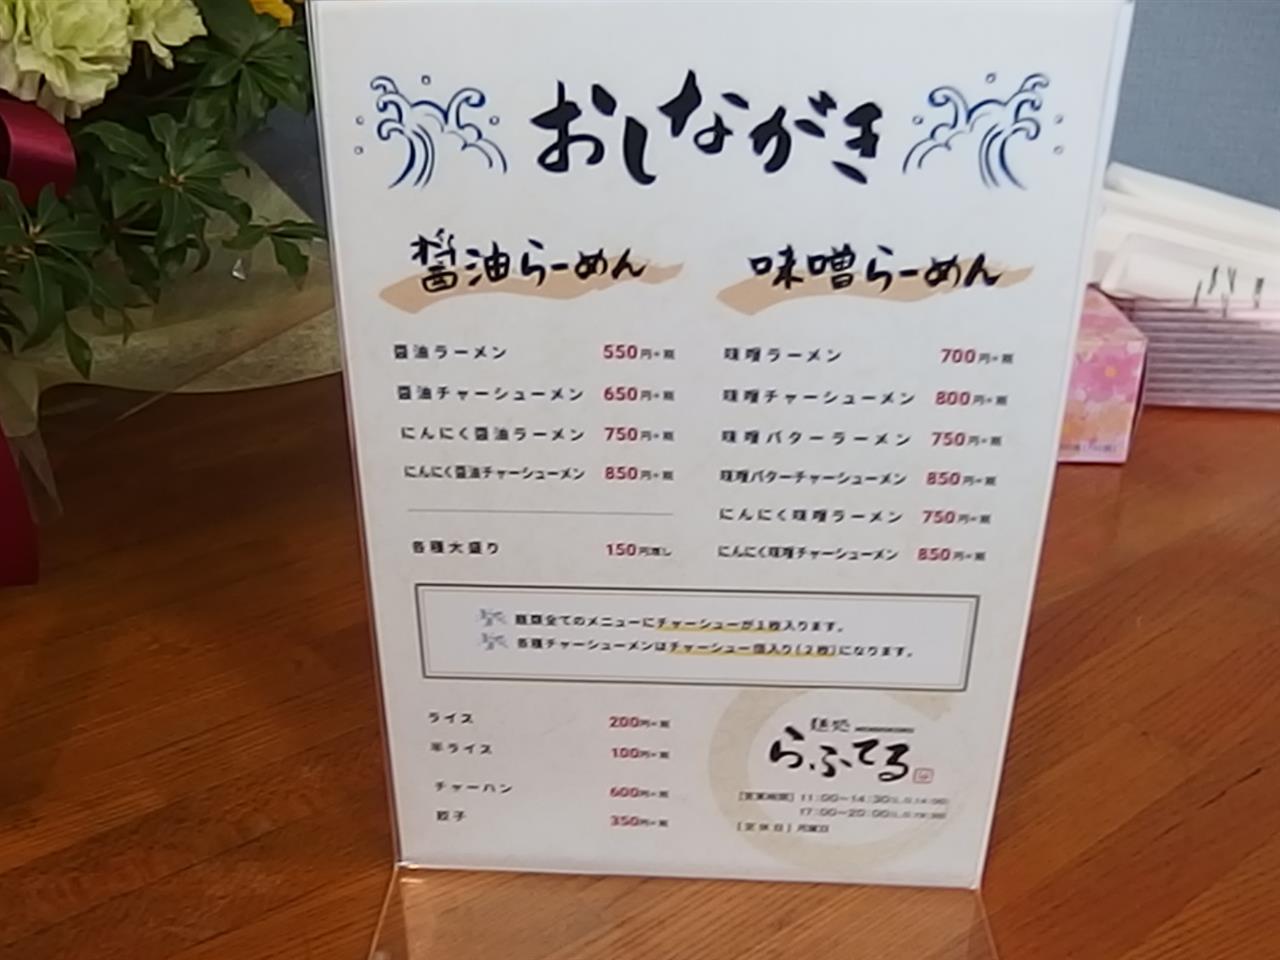 おしながき
醤油らーめん
醤油ラーメン 550円+税
醤油チャーシューメン 650円+税
にんにく醤油ラーメン 750円+税
にんにく醤油チャーシューメン 850円+税
各種大盛り 150円増し
味噌らーめん
味噌ラーメン 700円+税
味噌チャーシューメン 800円+税
味噌バターラーメン 750円+税
味噌バターチャーシューメン 850円+税
にんにく味噌ラーメン 750円+税
にんにく味噌チャーシューメン 850円+税
麺類全てのメニューにチャーシューが1枚入ります。
各種チャーシューメンはチャーシュー倍入り(2枚)になります。
ライス 200円+税
半ライス 100円+税
チャーハン 600円+税
餃子 350円+税
麺処
らふてる
[営業時間] 11:00~14:30
17:00~20:00
[定休日] 月曜日